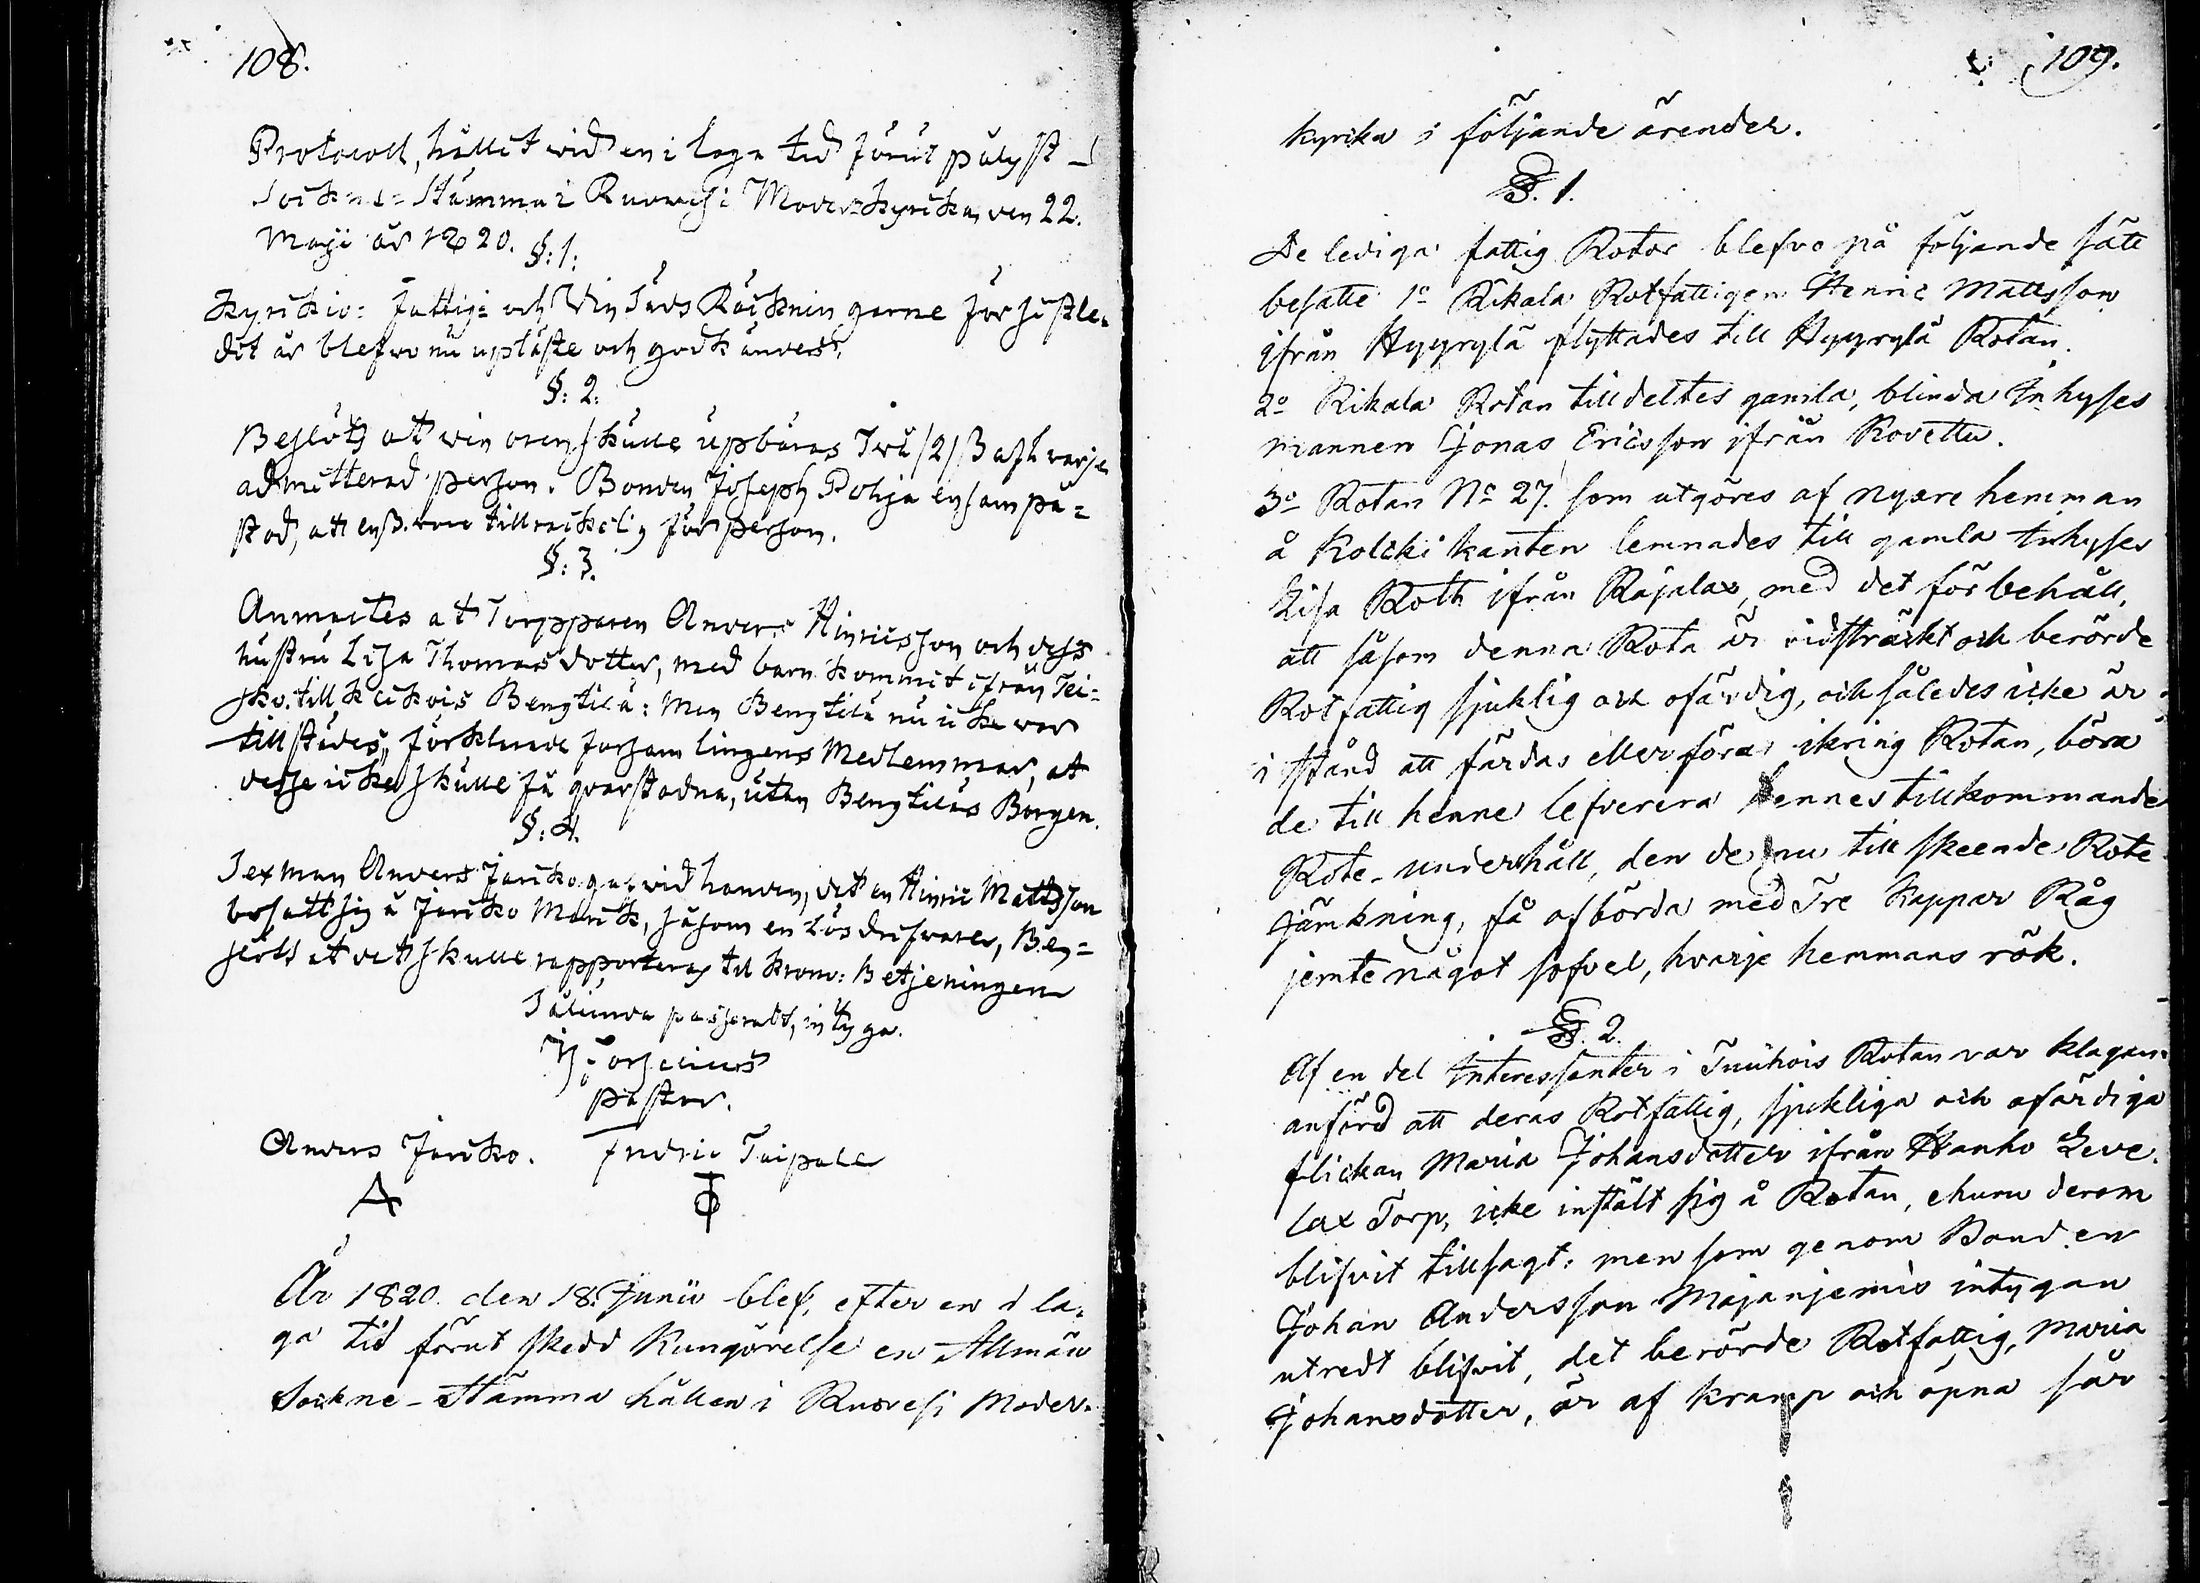 108.
Protocoll, hållit wid en i laga tid förut pålyst
Sockne-Stämma i Ruowesi Moderkyrkan den 22.
Maji år 1820.
§: 1:
Kyrkio- Fattig- och Vin Särs Räkningarne för sistle-
dit år blefwo nu upläste och godkändes.
§: 2.
Beslöts att vin orens skulle upbäras Två /2/ ß af hwarje
admitterad person. Bonden Joseph Pohja ensam på-
stod, att en ß. vore tillräckelig för person.
§: 3.
Anmältes at Torpparen Anders Hinricsson och dess
hustru Lisa Thomasdotter, med barn kommit ifrån Tei-
sko till Kekois Bengtilä: Men Bengtilä nu icke war
tillstädes, förklarade Församlingens Medlemmar, at
desse icke skulle få qvarstadna, utan Bengtiläs Borgen.
§: 4.
Sexman Anders Jäniko gaf wid handen, det en Hinric Mattsson
besatt sig å Jäniko Mark, såsom en Lösdrifware, Be-
slöts at det skulle rapporteras til Krono-Betjeningen
Sålunda passeradt, intyga.
H: Forselius
Pastor.
Anders Jäniko. Fredric Taipale
År 1820. den 18. Junii blef, efter en i la-
ga tid förut skedd Kungörelse en Allmän
Sockne-Stämma hållen i Ruovesi Moder-
109.
kyrka i följande ärender.
§. 1.
De lediga fattig Rotor blefvo på följande sätt
besatte 1o Rikala Rotfattigen Henric Mattsson
ifrån Hyyrylä flyttades till Hyyrylä Rotan.
2o Rikala Rotan tilldeltes gamla, blinda Inhyses
mannen Jonas Ericsson ifrån Rovettu.
3o Rotan No 27. som utgöres af nyare hemman
å Kolcki kanten lemnades till gamla Inhyses
Lisa Roth ifrån Rajalax, med det förbehåll,
att såsom denna Rota är vidsträckt och berörde
Rotfattig sjuklig och ofärdig, och således icke är
i stånd att färdas eller föras ikring Rotan, böra
de till henne lefverera hennes tillkommande
Rote-underhåll, den de nu till skeende Rote
jämkning, få afbörda med Tre Kappar Råg
jemte något sofvel, hvarje hemmans rök.
§. 2.
Af en del Interessenter i Tuuhois Rotan var klagan
anförd att deras Rotfattig, sjukliga och ofärdiga
flickan Maria Johansdotter ifrån Hanho Leve-
lax Torp, icke instält sig å Rotan, ehuru derom
blifvit tillsagt: men som genom Bonden
Johan Andersson Majanjemis intygan
utredt blifvit, det berörde Rotfattig, Maria
Johansdotter, är af kramp och öpna sår